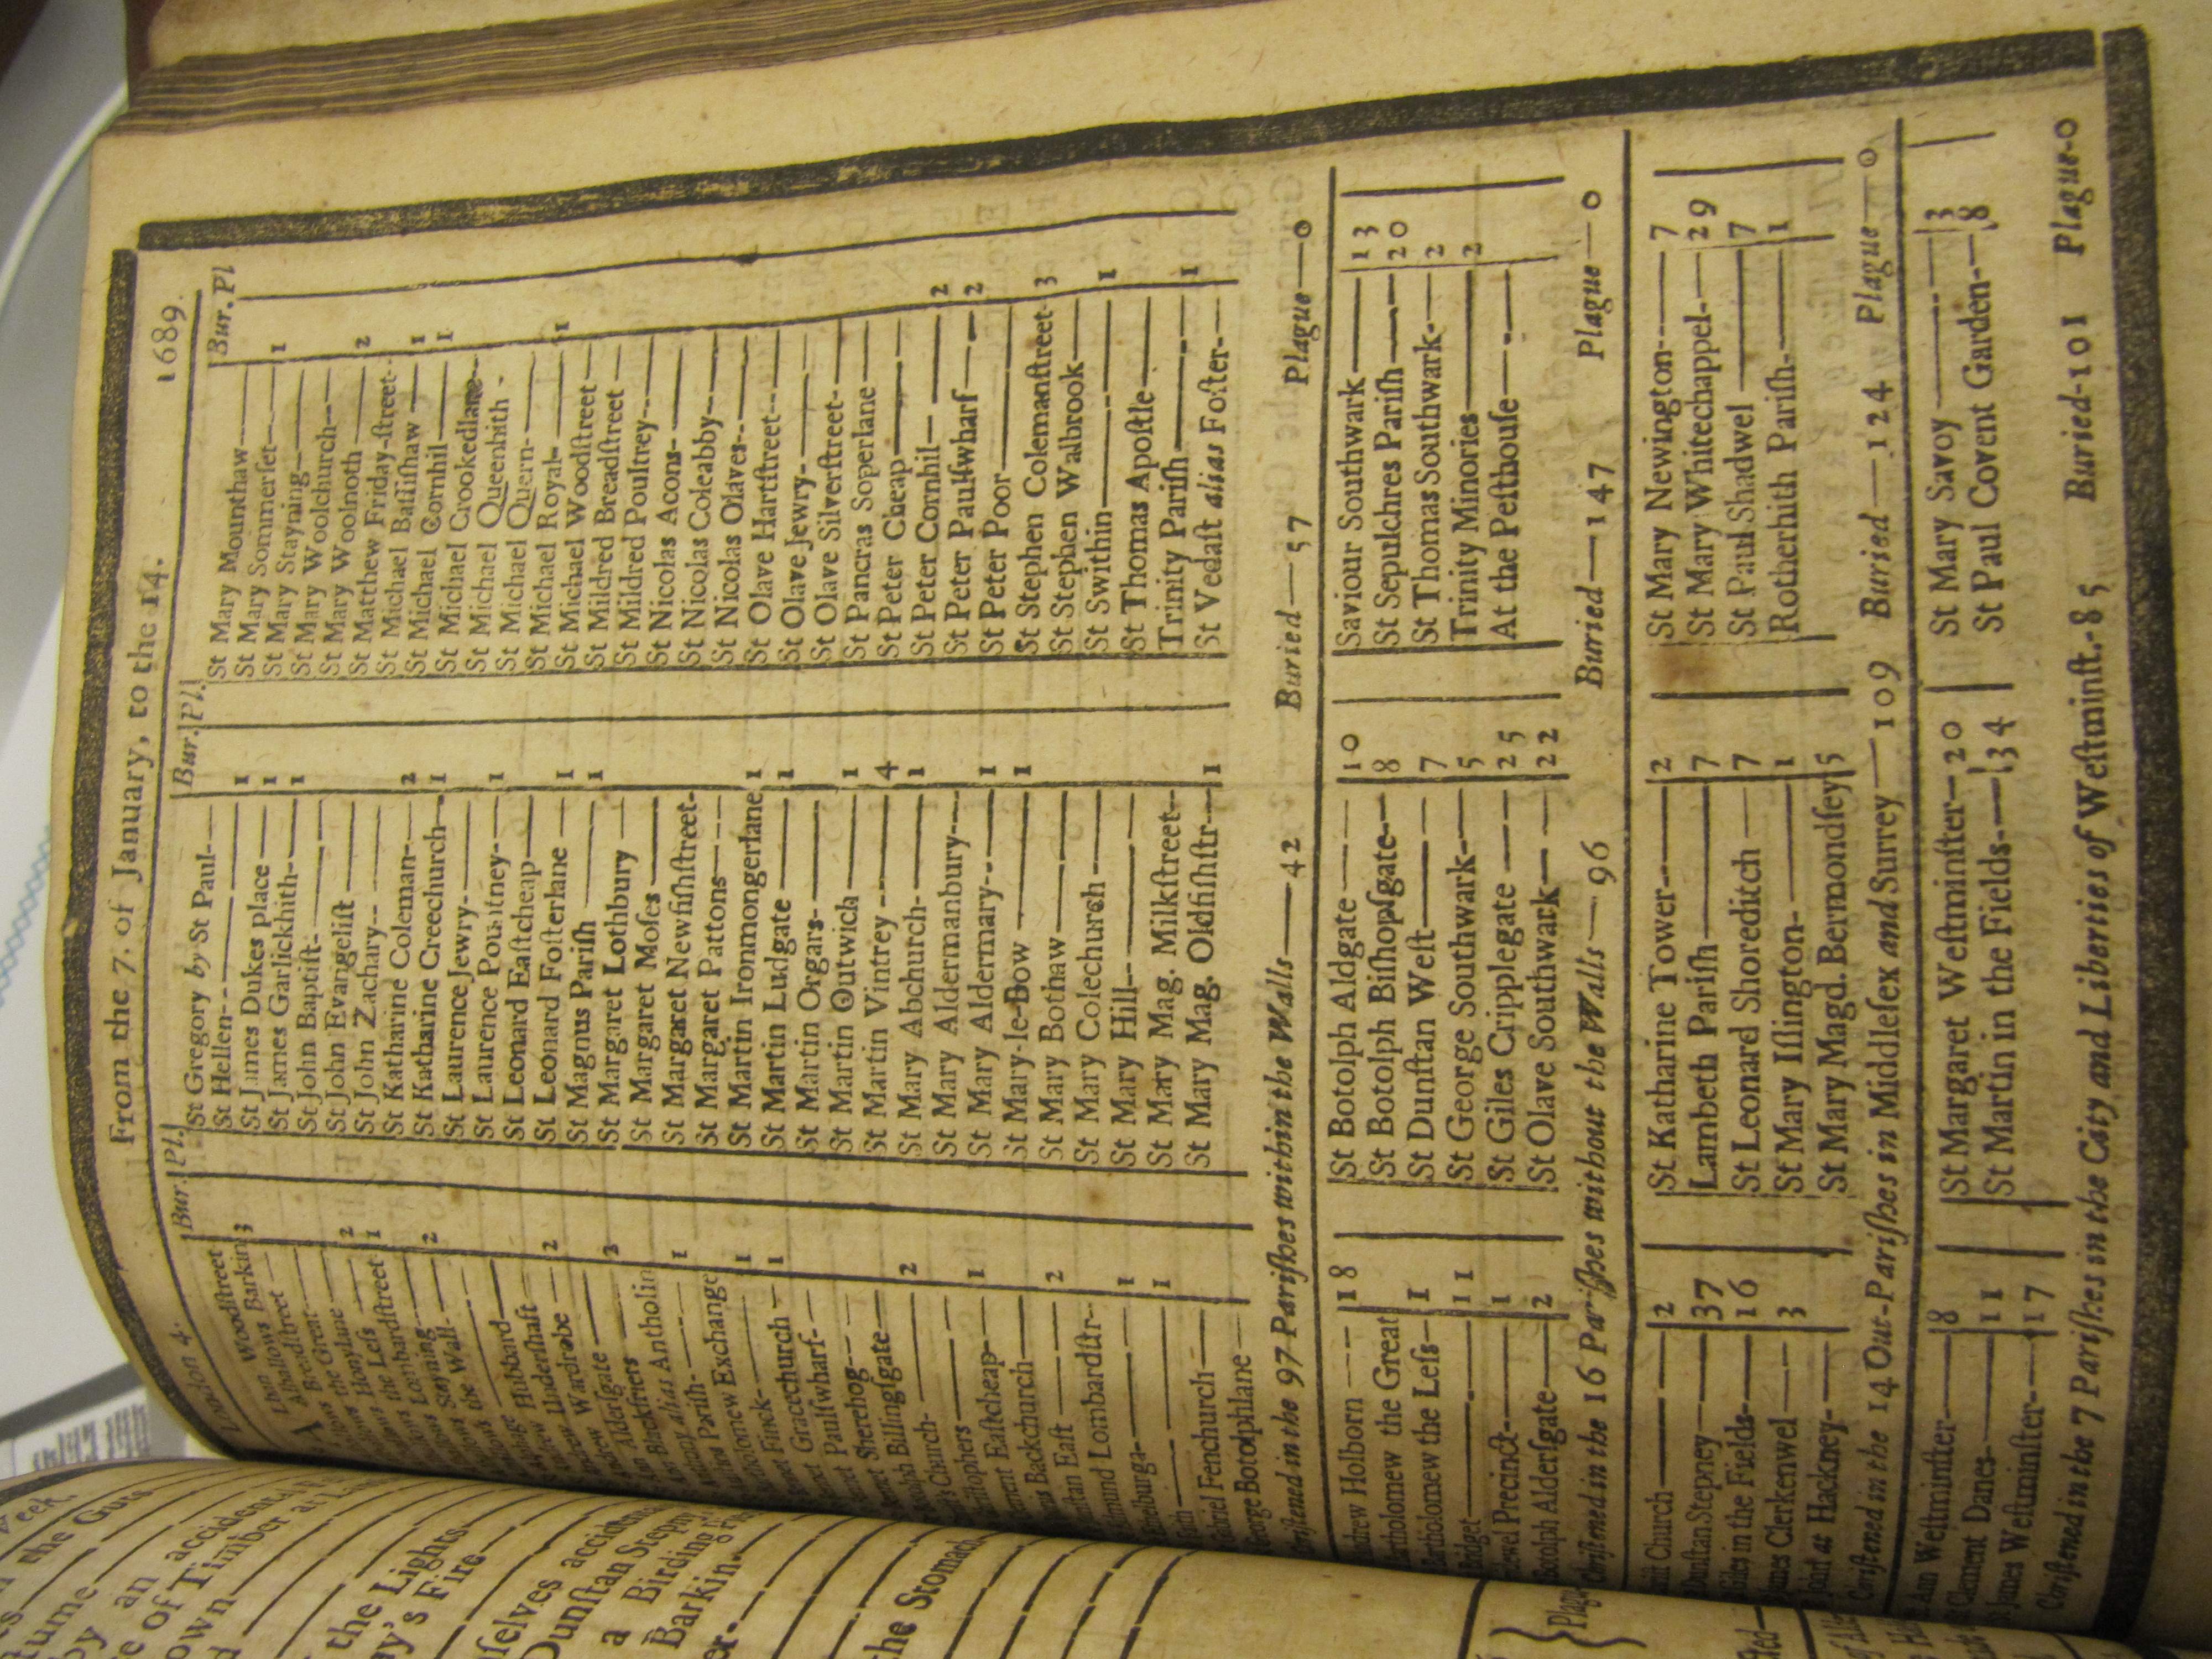 London 4. From the 7. of January, to the 14. 1689.
Bur. Pl.
Woodſtreet
Barking 3
Alhallows Breadſtreet —
Great —
Honylane — 2
the Leſs — 1
Lombardſtreet
Stayning — 2
the Wall-
Hubbard —
Underſhaft — 2
Wardrobe —
Alderſgate — 3
Blackfriers
alias Antholin
Pariſh- 1
New Exchange
Finck- 1
Gracechurch — 1
Paulſwharf-
Sherehog
Billingſgate —
Church- 2
Eaſtcheap — 1
Backchurch —
Eaſt — 2
Lombardſtr-
1
1
Fenchurch —
George Botolphlane —
Bur. Pl.
St Gregory by St Paul —
St Hellen- 1
St James Dukes place — 1
St James Garlickhith- 1
St John Baptiſt-
St John Evangeliſt —
St John Zachary--
St Katharine Coleman-- 2
St Katharine Creechurch — 1
St Laurence Jewry-
St Laurence Pountney- 1
St Leonard Eaſtcheap —
St Leonard Foſterlane — 1
St Magnus Pariſh — 1
St Margaret Lothbury —
St Margaret Moſes —
St Margaret Newfiſhſtreet-
St Margaret Pattons —
St Martin Ironmongerlane 1
St Martin Ludgate — 1
St Martin Orgars-
St Martin Outwich — 1
St Martin Vintrey -- 4
St Mary Abchurch- 1
St Mary Aldermanbury —
St Mary Aldermary-- 1
St Mary-le-Bow — 1
St Mary Bothaw —
St Mary Colechurch —
St Mary Hill-
St Mary Mag. Milkſtreet--
St Mary Mag. Oldfiſhſtr — 1
Bur. Pl
St Mary Mounthaw —
St Mary Sommerſet- 1
St Mary Stayning —
St Mary Woolchurch--
St Mary Woolnoth — 2
St Matthew Friday-ſtreet-
St Michael Baſſiſhaw — 1
St Michael Cornhil — 1
St Michael Crookedlane--
St Michael Queenhith -
St Michael Quern-
St Michael Royal- 1
St Michael Woodſtreet —
St Mildred Breadſtreet —
St Mildred Poultrey--
St Nicolas Acons-
St Nicolas Coleabby —
St Nicolas Olaves--
St Olave Hartſtreet--
St Olave Jewry-
St Olave Silverſtreet-
St Pancras Soperlane —
St Peter Cheap —
St Peter Cornhil — 2
St Peter Paulſwharf — 2
St Peter Poor —
St Stephen Colemanſtreet- 3
St Stephen Walbrook —
St Swithin — 1
St Thomas Apoſtle —
Trinity Pariſh —
St Vedaſt alias Foſter- 1
Chriſtened in the 97 Pariſhes within the Walls — 42 Buried — 57 Plague — 0
Andrew Holborn — 18
Bartholomew the Great
Bartholomew the Leſs — 1
Bridget — 11
Bridewel Precinct- 1
Botolph Alderſgate — 2
St Botolph Aldgate — 10
St Botolph Biſhopſgate-- 8
St Dunſtan Weſt — 7
St George Southwark — 5
St Giles Cripplegate — 25
St Olave Southwark — 22
Saviour Southwark — 13
St Sepulchres Pariſh — 20
St Thomas Southwark- 2
Trinity Minories — 2
At the Peſthouſe —
Chriſtened in the 16 Pariſhes without the Walls — 96 Buried — 147 Plague — 0
Church — 2
Dunſtan Stepney — 37
Giles in the Fields — 16
James Clerkenwel — 3
John at Hackney-
St Katharine Tower — 2
Lambeth Pariſh — 7
St Leonard Shoreditch — 7
St Mary Iſlington- 1
St Mary Magd. Bermondſey 5
St Mary Newington — 7
St Mary Whitechappel- 29
St Paul Shadwel — 7
Rotherhith Pariſh- 1
Chriſtened in the 14 Out-Pariſhes in Middleſex and Surrey — 109 Buried — 124 Plague — 0
Weſtminſter — 8
Clement Danes- 11
St James Weſtminſter- 17
St Margaret Weſtminſter — 20
St Martin in the Fields- 34
St Mary Savoy — 3
St Paul Covent Garden — 8
Chriſtened in the 7 Pariſhes in the City and Liberties of Weſtminſt.-85 Buried-101 Plague-0
the Guts
by an accident
of Timber at
the Lights
Fire
Dunſtan Stepny
a Birding
Barkin
the Stomach